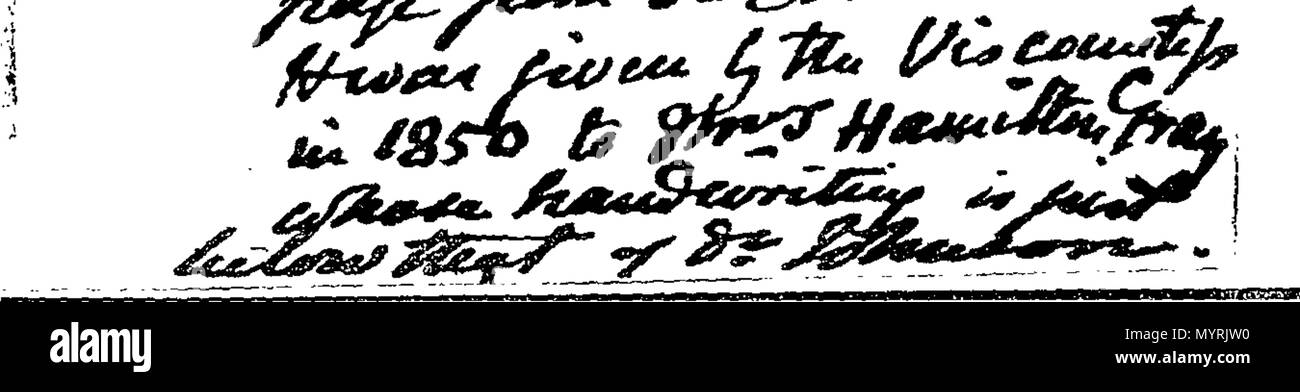 page from
It was given by the Viscountess
in 1850 to Mrs Hamilton Gray
whose handwriting is just
below that of Dr Johnson.
alamy
Image ID: MYRJW0
www.alamy.com